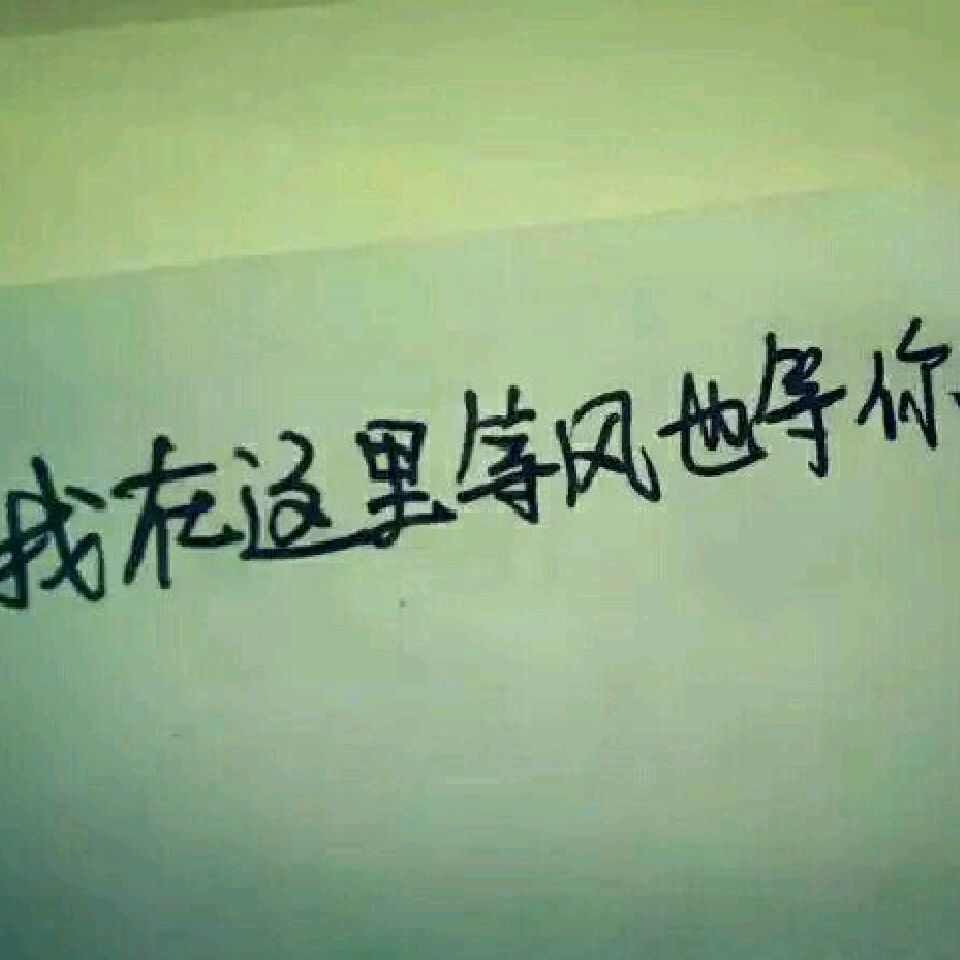 我在这里等风也等你